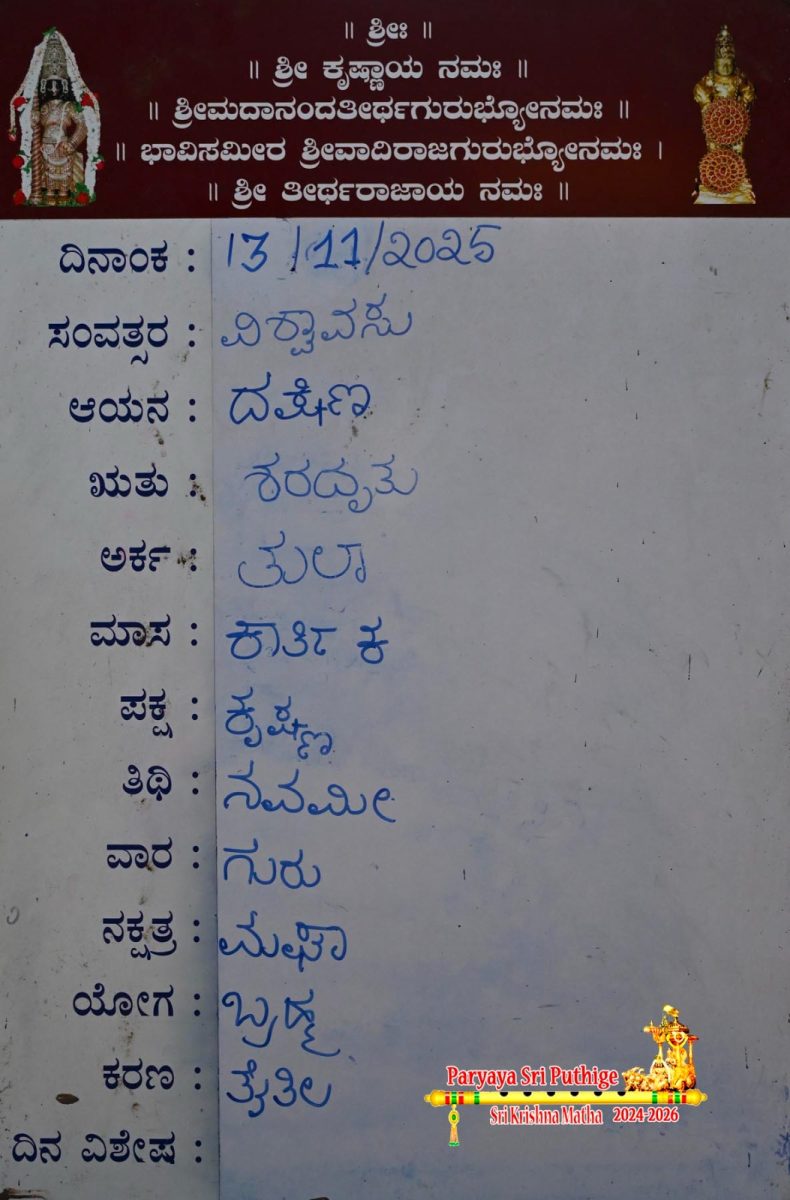 ॥ ಶ್ರೀಃ ॥
॥ ಶ್ರೀ ಕೃಷ್ಣಾಯ ನಮಃ ॥
॥ ಶ್ರೀಮದಾನಂದತೀರ್ಥಗುರುಭ್ಯೋನಮಃ ॥
॥ ಭಾವಿಸಮೀರ ಶ್ರೀವಾದಿರಾಜಗುರುಭ್ಯೋನಮಃ ।
॥ ಶ್ರೀ ತೀರ್ಥರಾಜಾಯ ನಮಃ ॥
ದಿನಾಂಕ : 13/11/೨೦೨5
ಸಂವತ್ಸರ : ವಿಶ್ವಾವಸು
ಆಯನ : ದಕ್ಷಿಣ
ಋತು : ಶರದೃತು
ಅರ್ಕ : ತುಲಾ
ಮಾಸ : ಕಾರ್ತಿಕ
ಪಕ್ಷ : ಕೃಷ್ಣ
ತಿಥಿ : ನವಮೀ
ವಾರ : ಗುರು
ನಕ್ಷತ್ರ : ಮಘಾ
ಯೋಗ : ಬ್ರಹ್ಮ
ಕರಣ : ತೈತಿಲ
ದಿನ ವಿಶೇಷ :
Paryaya Sri Puthige
Sri Krishna Matha 2024-2026